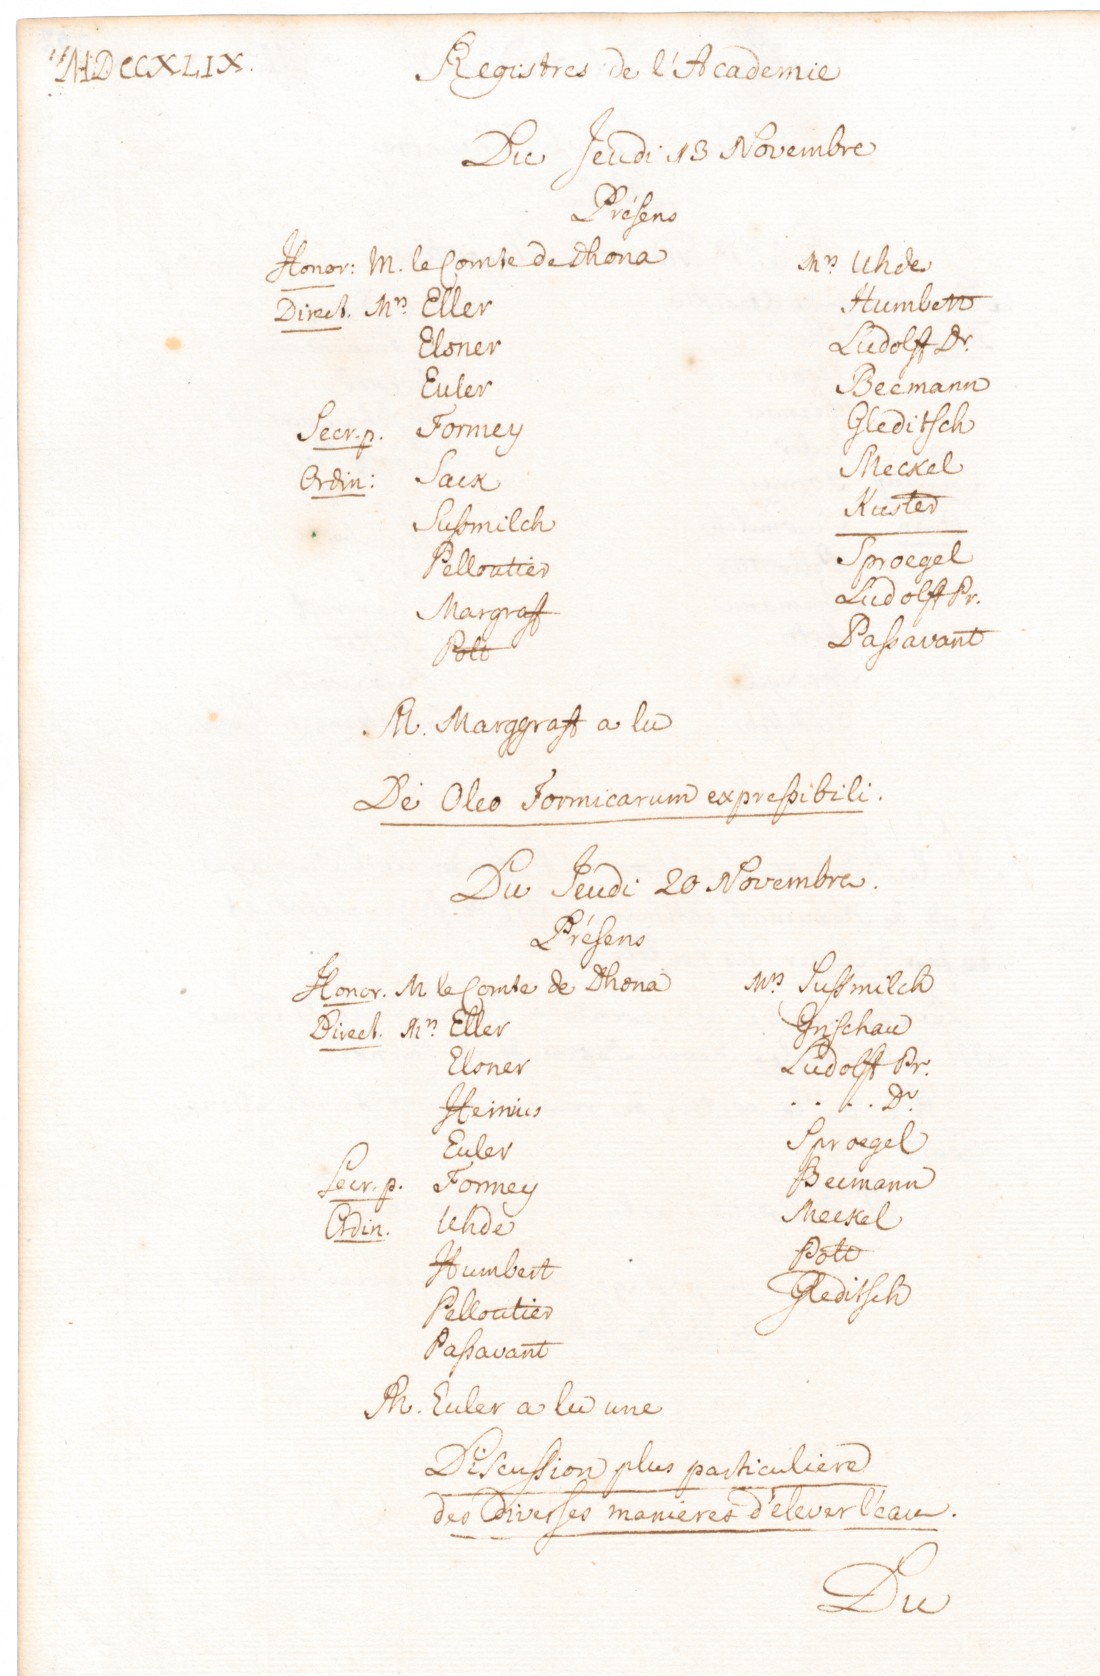 MDCCXLIX.
Registres de l'Academie
Du Jeudi 13 Novembre
Présens
Honor: M. le Comte de Dhona
Direct. Mrs Eller
Elsner
Euler
Secr. p. Formey
Ordin: Sack
Sußmilch
Pelloutier
Margraff
Pott
Mrs Uhde
Humbert
Ludolff Dr.
Becmann
Gleditsch
Meckel
Kuster
Sproegel
Ludolff Pr.
Passavant
M. Marggraff a lu
De Oleo Formicarum expressibili.
Du Jeudi 20 Novembre.
Présens
Honor. M le Comte de Dhona
Direct. Mrs Eller
Elsner
Heinius
Euler
Secr. p. Formey
Ordin. Uhde
Humbert
Pelloutier
Passavant
Mrs Sussmilch
Grischau
Ludolff Pr.
. . . . Dr.
Sproegel
Becmann
Meckel
Pott
Gleditsch
M. Euler a lu une
Discussion plus particuliere
des diverses manieres d'élever l'eau.
Du